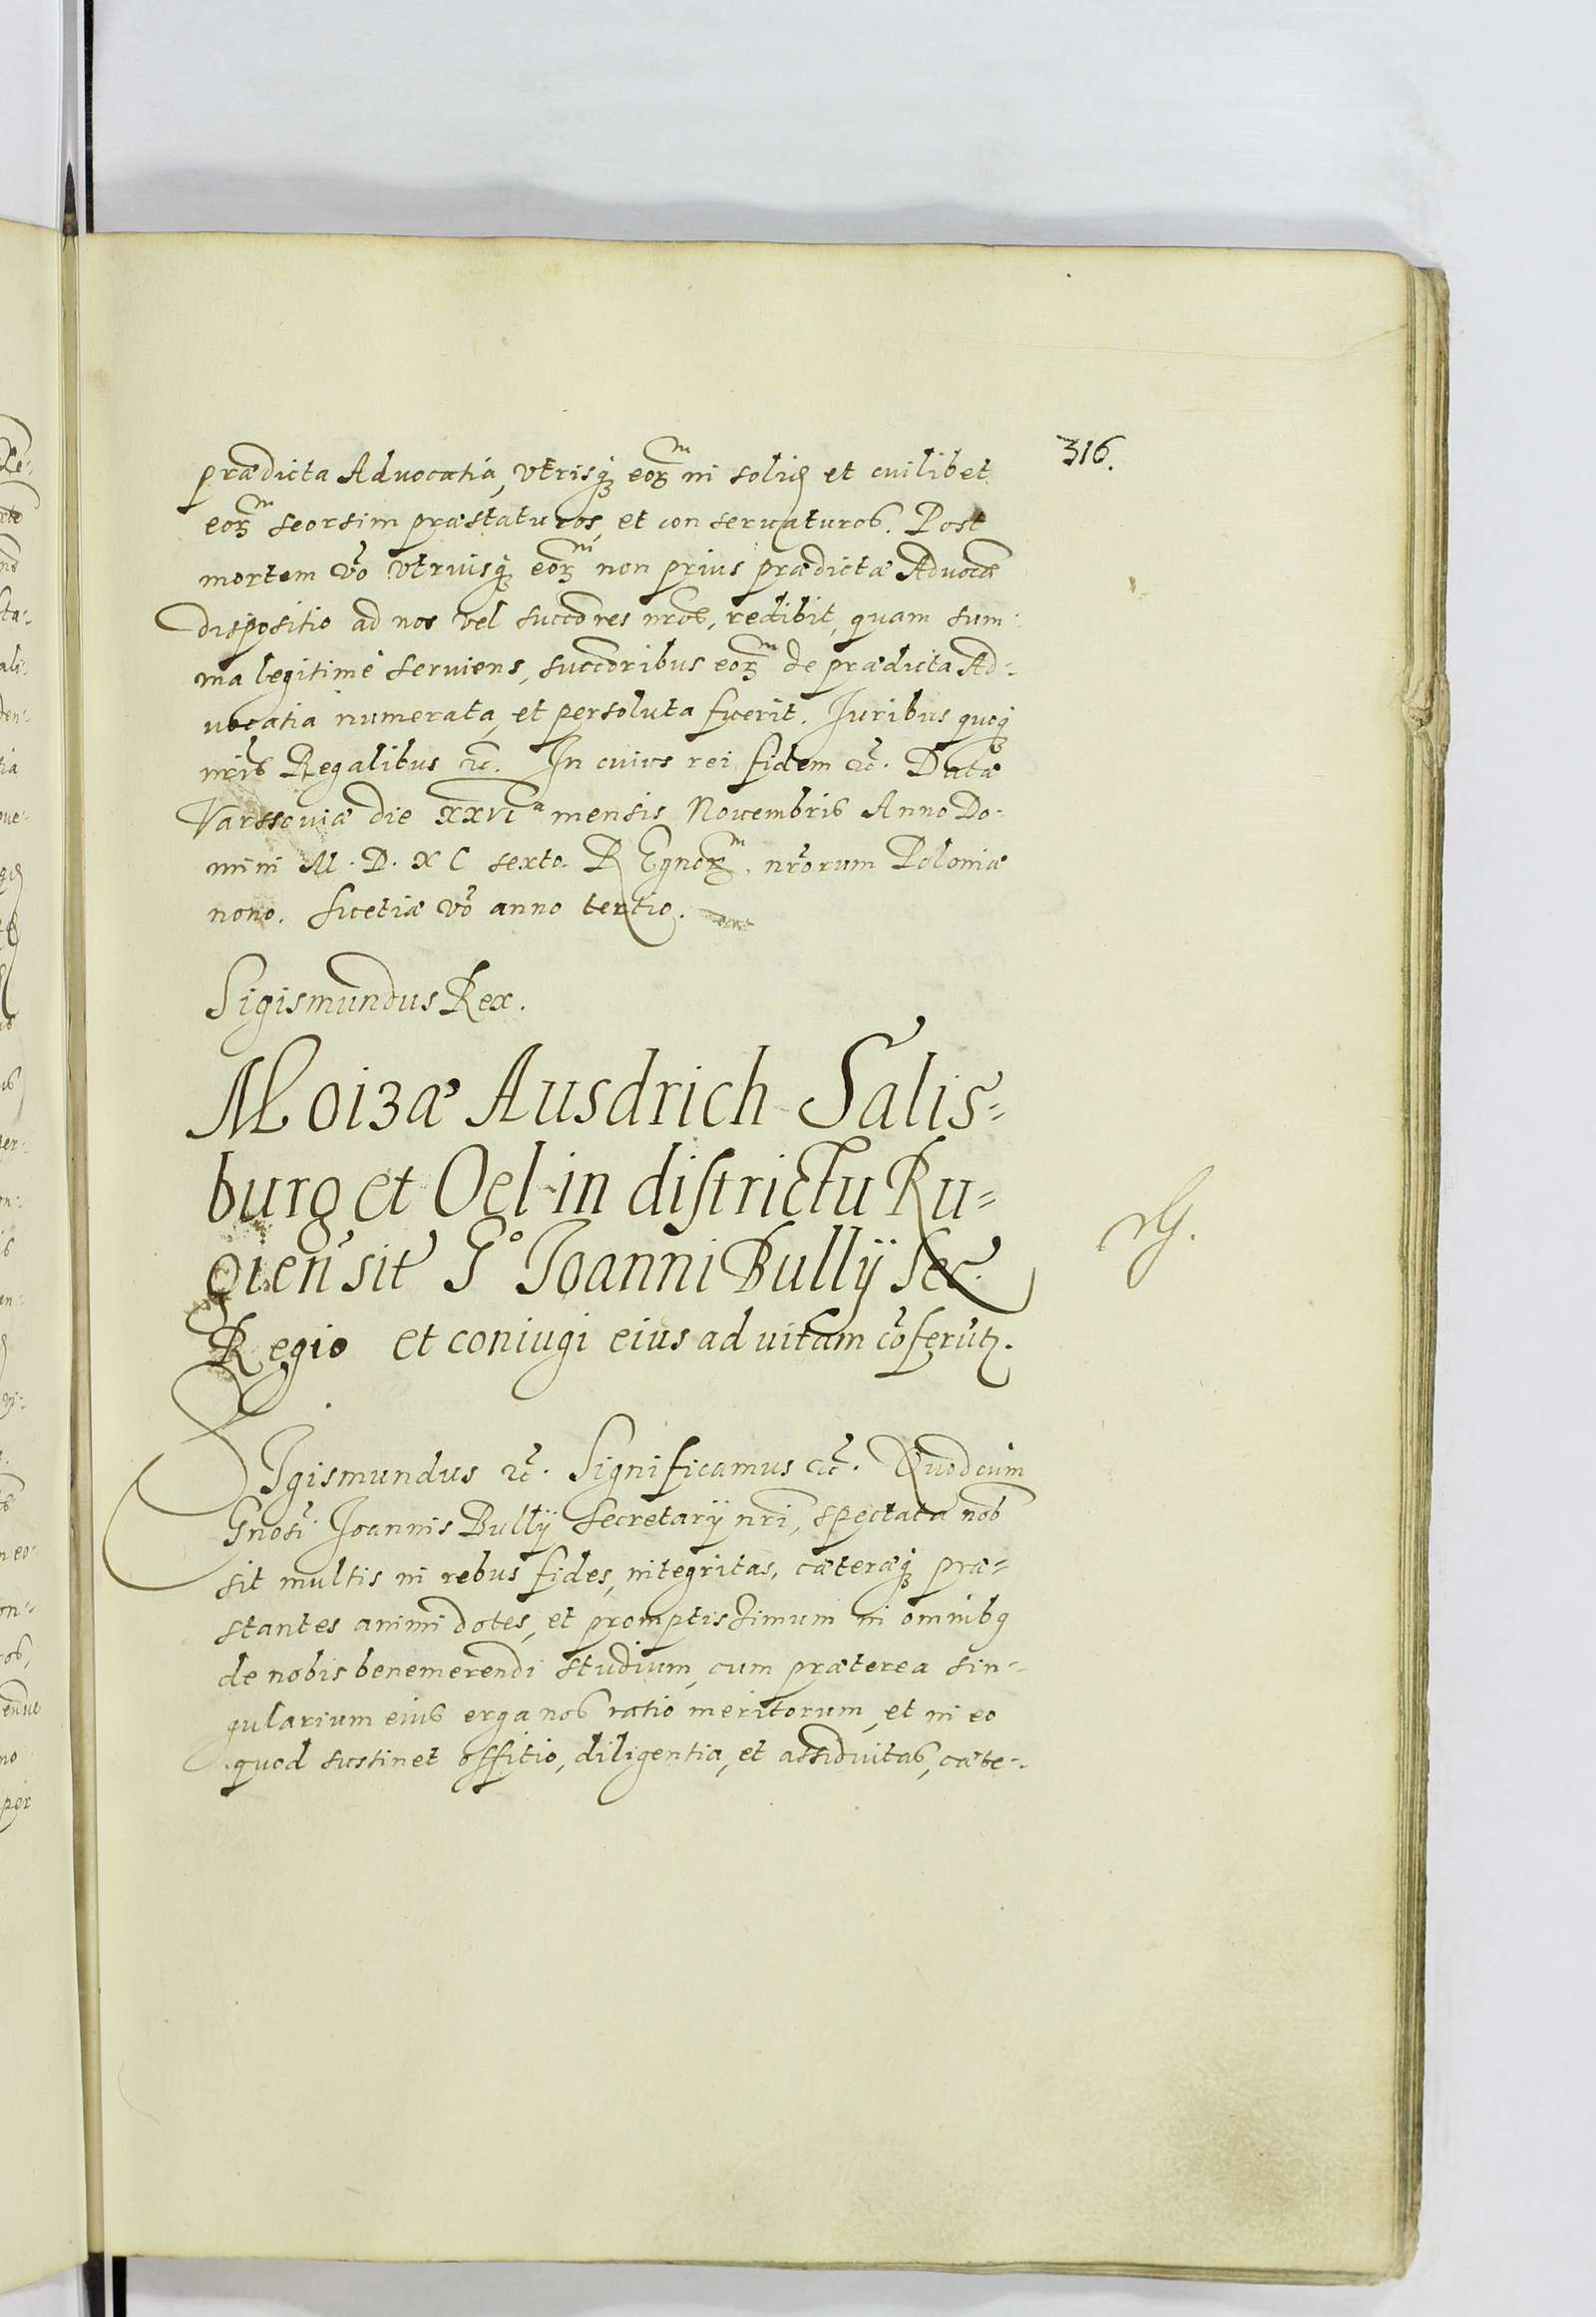 316.
prædicta Advocatia, vtrisq3 eorum in solid et cuilibet
eorum seorsim præstaturos, et conservaturos. Post
mortem vo vtriusq3 eorum non prius prædictæ Advocæ
dispositio ad nos vel succores nros, redibit, quam sum-
ma legitime serviens, succoribus eorum de prædicta Ad-
vocatia numerata, et persoluta fuerit. Iuribus quoq3
nris Regalibus etc. In cuius rei fidem etc. Datæ
Varssoviæ die XXVIa mensis Novembris Anno Do-
mini M. D. XC sexto. REgnorum nrorum Poloniæ
nono. Suetiæ vo anno tertio.
Sigismundus Rex.
Moizæ Ausdrich Salis=
burg et Oel in districtu Ru=
gien sit Go Joanni Bullÿ Sec.
Regio et coniugi eius ad vitam coferutr.
SIgismundus etc. Significamus etc. Quod cum
Gnosi Joannis Bullÿ Secretarÿ nri, spectata nob
sit multis in rebus fides, integritas, cæteræq3 præ=
stantes animi dotes, et promptissimum in omnibg
de nobis benemerendi studium, cum præterea sin-
gularium eius erga nos ratio meritorum, et in eo
quod sustinet offitio, diligentia, et assiduitas, cæte-